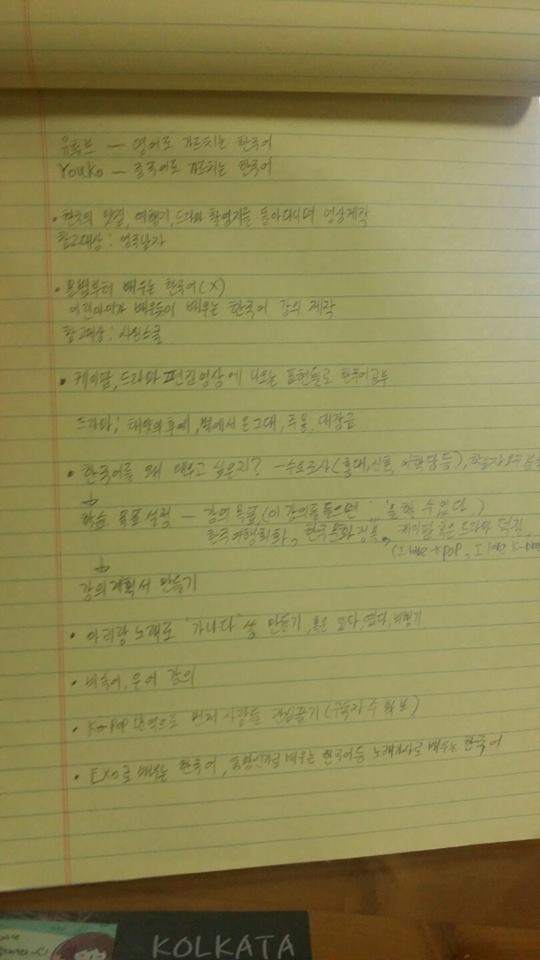 유튜브 — 영어로 가르치는 한국어
Youko — 중국어로 가르치는 한국어
• 한국의 맛집, 여행지, 드라마 촬영지를 돌아다니며 영상제작
참고대상 : 영국남자
• 문법부터 배우는 한국어(X)
어린아이가 배우듯이 배우는 한국어 강의 제작
참고대상 : 시원스쿨
• 케이팝, 드라마 편집영상에 나오는 표현들로 한국어공부
드라마; 태양의후예, 별에서온그대, 주몽, 대장금
• 한국어를 왜 배우고 싶은지? - 수요조사(홍대, 신촌, 어학당등),
학습 목표 설정 — 강의 목표(이 강의를 들으면 ; 을 할 수 있다.)
한국여행회화, 한국문화정복, 케이팝 혹은 드라마 덕질
(I love K-pop, I love K-
강의계획서 만들기
• 아리랑 노래로 '가나다' 송 만들기, 혹은
• 비속어, 은어 강의
• K-Pop 번역으로 먼저 사람들 관심끌기 (구독자수 확보)
• EXO로 배우는 한국어, 동방신기로 배우는 한국어등 노래가사로 배우는 한국어
KOLKATA